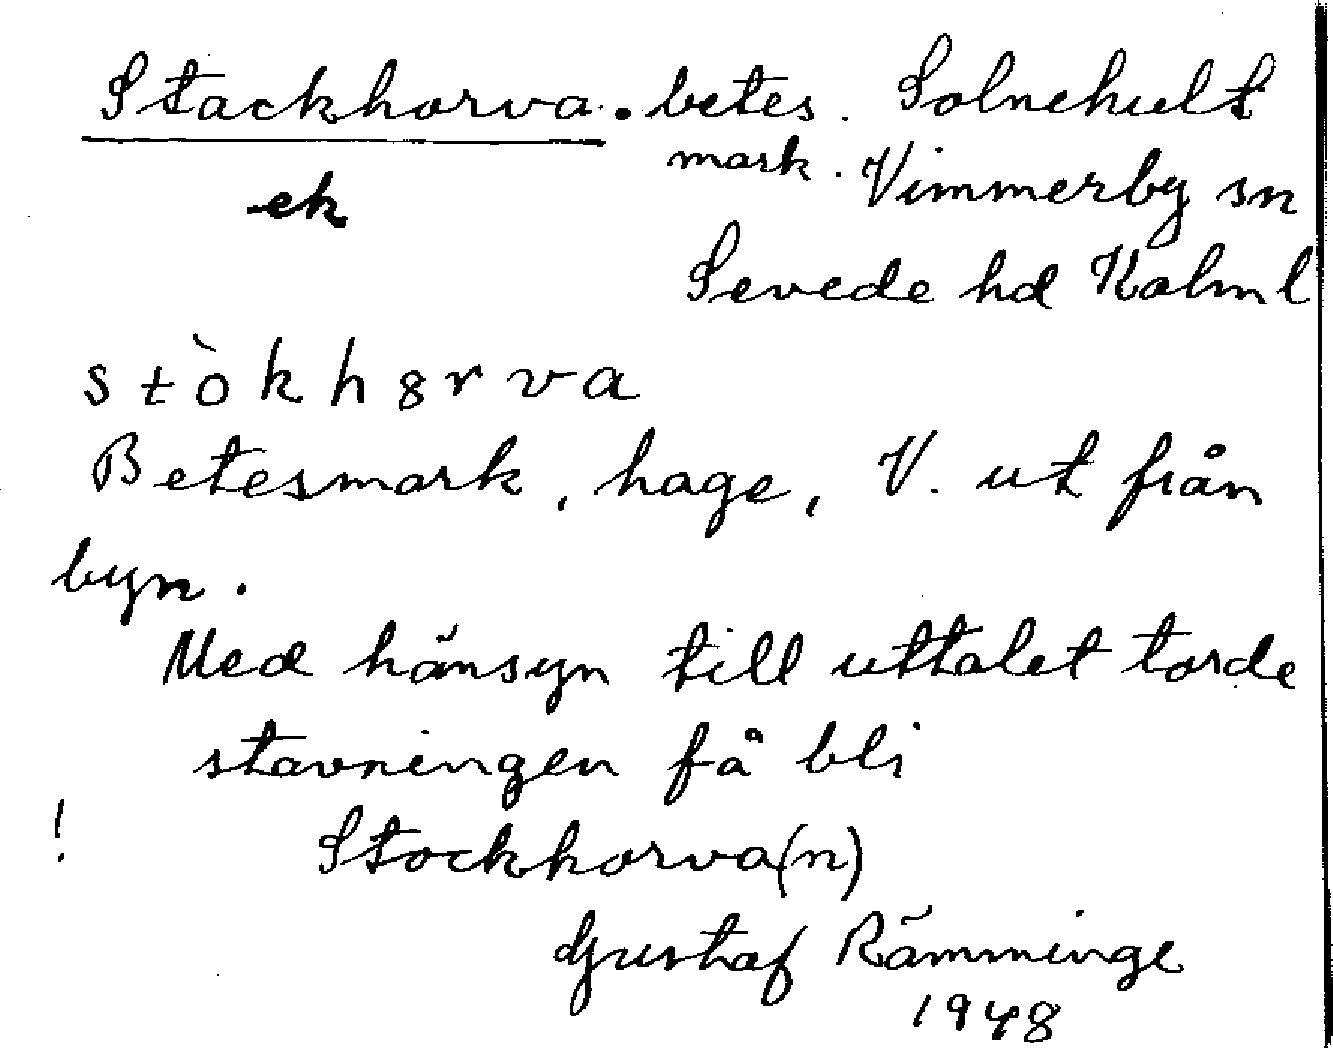 Stackhorva. betes. Solnehult
mark. Vimmerby sn
ek
Sevede hd Kalm l
stòkh8rva
Betesmark, hage, V. ut från
byn.
Med hänsyn till uttalet torde
stavningen få bli
! Stockhorva(n)
Gustaf Rämminge
1948